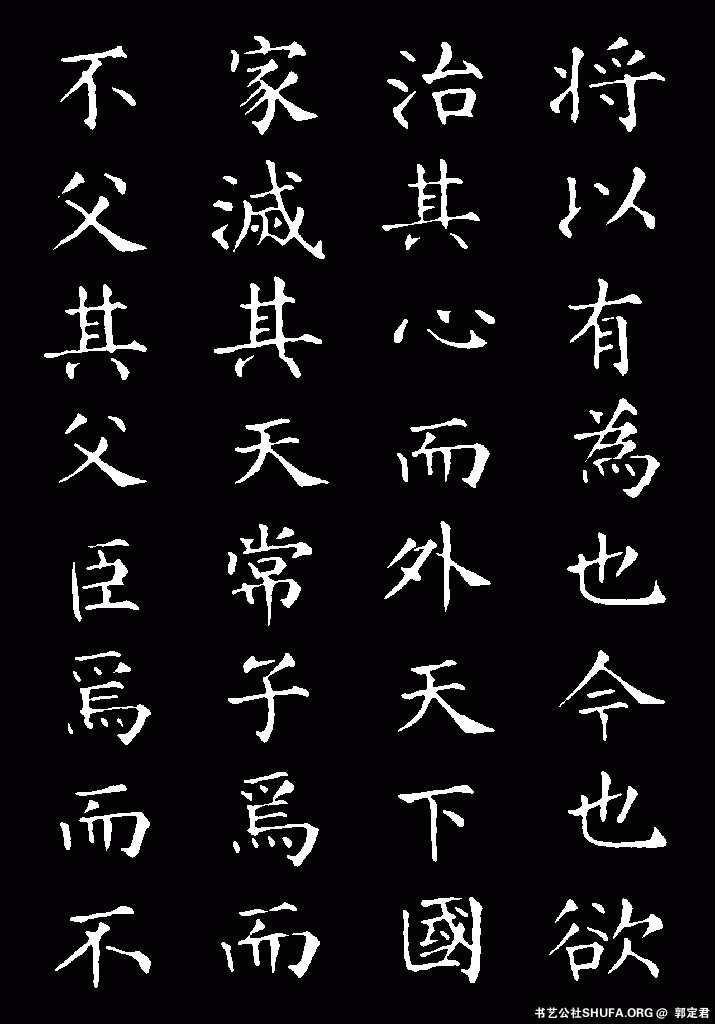 将以有為也今也欲
治其心而外天下國
家滅其天常子焉而
不父其父臣焉而不
书艺公社SHUFA.ORG @ 郭定君